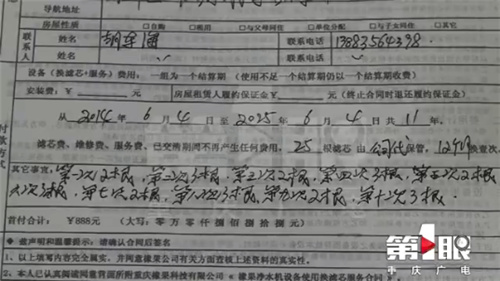 导航地址
房屋性质 □自购 □租用 □与父母同住 □单位分配 □与子女同住 □其它
联系人 姓名 胡 海 联系电话 13883564398
设备(换滤芯+服务)费用:一组为一个结算期(使用不足一个结算期仍以一个结算期收费)
安装费:¥ 元 房屋租赁人履约保证金¥ 元(终止合同时退还履约保证金)
付款方式
从 2014 年 6 月 4 日至 2025 年 6 月 4 日共 11 年。
滤芯费、维修费、服务费,已交所期间不再产生任何费用。25 根滤芯 由 公司代 保管, 12个月换壹次。
其它事宜:第一次2根,第二次3根,第三次2根,第四次3根,第五次2根
六次3根,第七次2根,第八次3根,第九次2根,第十次3根。
首付合计: ¥888元 (大写:零万 零仟 捌佰 捌拾 捌元)
◆ 兹声明和温馨提示:请确认合同后签名
1、以上填写内容完全属实,并同意橡果公司有关方面查核上述资料的真实性。
2、本人已认真阅读同意背面所附重庆橡果科技有限公司《橡果净水机设备使用换滤芯服务合同》
第1眼
重庆广电